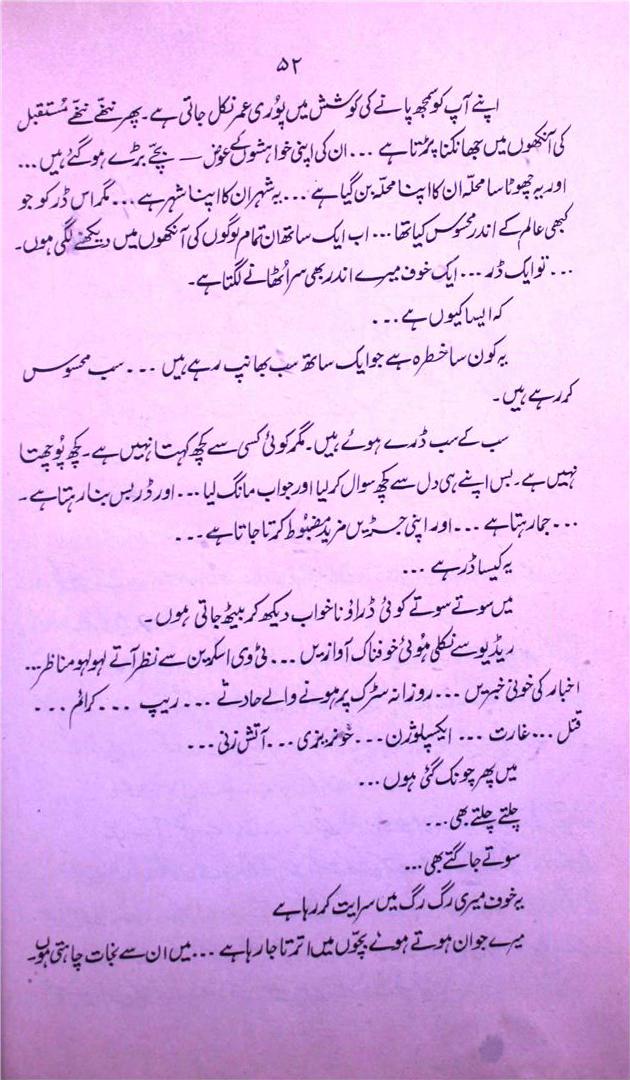 ۵۲
اپنے آپ کو سمجھ پانے کی کوشش میں پوُری عمر نکل جاتی ہے۔ پھر ننھّے ننھّے مُستقبل
کی آنکھوں میں جھانکنا پڑتا ہے ... ان کی اپنی خواہشوں کے عوض — بچّے بڑے ہو گئے ہیں ...
اور یہ چھوٹا سا محلہ ان کا اپنا محلہ بن گیا ہے ... یہ شہر ان کا اپنا شہر ہے ... مگر اس ڈر کو جو
کبھی عالم کے اندر محسوس کیا تھا ... اب ایک ساتھ ان تمام لوگوں کی آنکھوں میں دیکھنے لگی ہوں۔
... تو ایک ڈر ... ایک خوف میرے اندر بھی سر اُٹھانے لگتا ہے۔
کہ ایسا کیوں ہے ...
یہ کون سا خطرہ ہے جو ایک ساتھ سب بھانپ رہے ہیں ... سب محسوس
کر رہے ہیں۔
سب کے سب ڈرے ہوئے ہیں۔ مگر کوئی کسی سے کچھ کہتا نہیں ہے۔ کچھ پوُچھتا
نہیں ہے۔ بس اپنے ہی دل سے کچھ سوال کر لیا اور جواب مانگ لیا ... اور ڈر بس بنا رہتا ہے۔
... جما رہتا ہے ... اور اپنی جڑیں مزید مضبُوط کرتا جاتا ہے ...
یہ کیسا ڈر ہے ...
میں سوتے سوتے کوئی ڈراؤنا خواب دیکھ کر بیٹھ جاتی ہوں۔
ریڈیو سے نکلی ہوُئی خوفناک آوازیں ... ٹی وی اسکرین سے نظر آتے لہو لہو مناظر ...
اخبار کی خونی خبریں ... روزانہ سڑک پر ہونے والے حادثے ... ریپ ... کرائم ...
قتل ... غارت ... ایکسپلوژن ... خونریزی ... آتش زنی ...
میں پھر چونک گئی ہوں ...
چلتے چلتے بھی ...
سوتے جاگتے بھی ...
یہ خوف میری رگ رگ میں سرایت کر رہا ہے
میرے جوان ہوتے ہوئے بچّوں میں اترتا جا رہا ہے ... میں ان سے نجات چاہتی ہوں۔